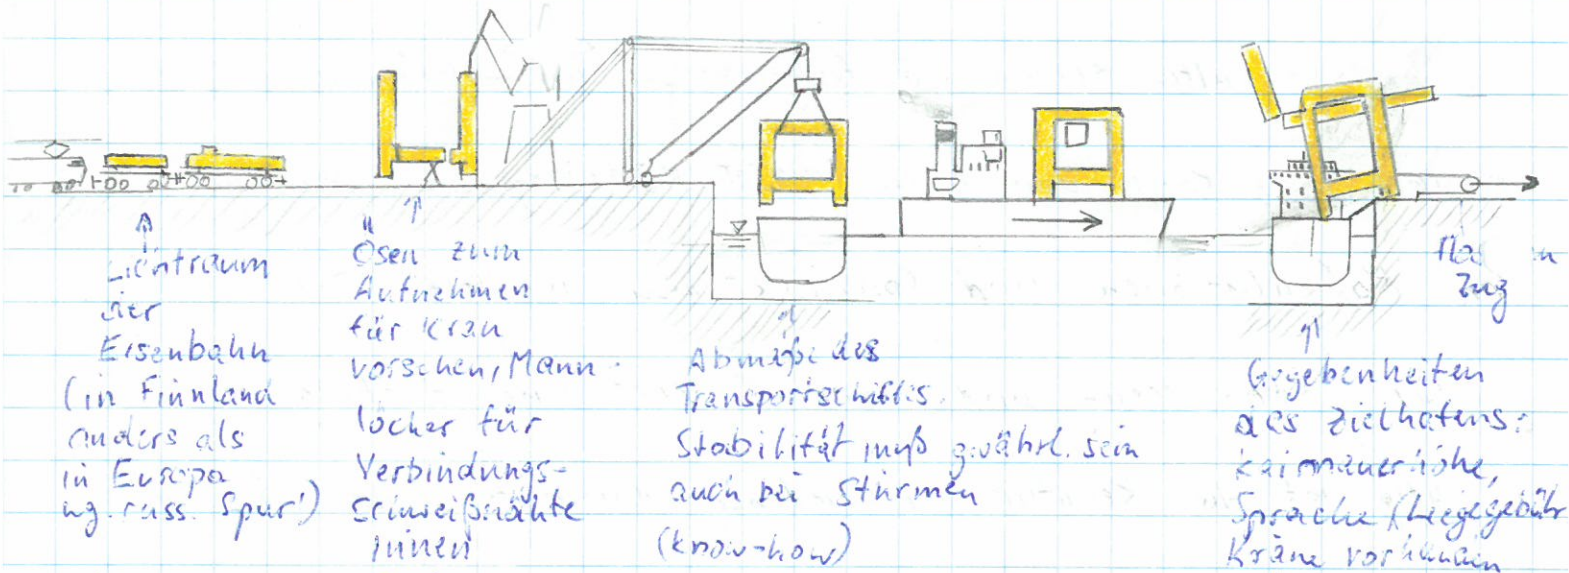 Lichtraum
der
Eisenbahn
(in Finnland
anders als
in Europa
wg. russ. Spur')
Ösen zum
Aufnehmen
für Kran
vorsehen, Mann-
löcher für
Verbindungs-
schweißnähte
innen
Abmaße des
Transportschiffes.
Stabilität muß gewährl. sein
auch bei Stürmen
(know-how)
Zug
Gegebenheiten
des Zielhafens:
Kaimauerhöhe,
Sprache, Liegegebühr
Kräne vorhanden